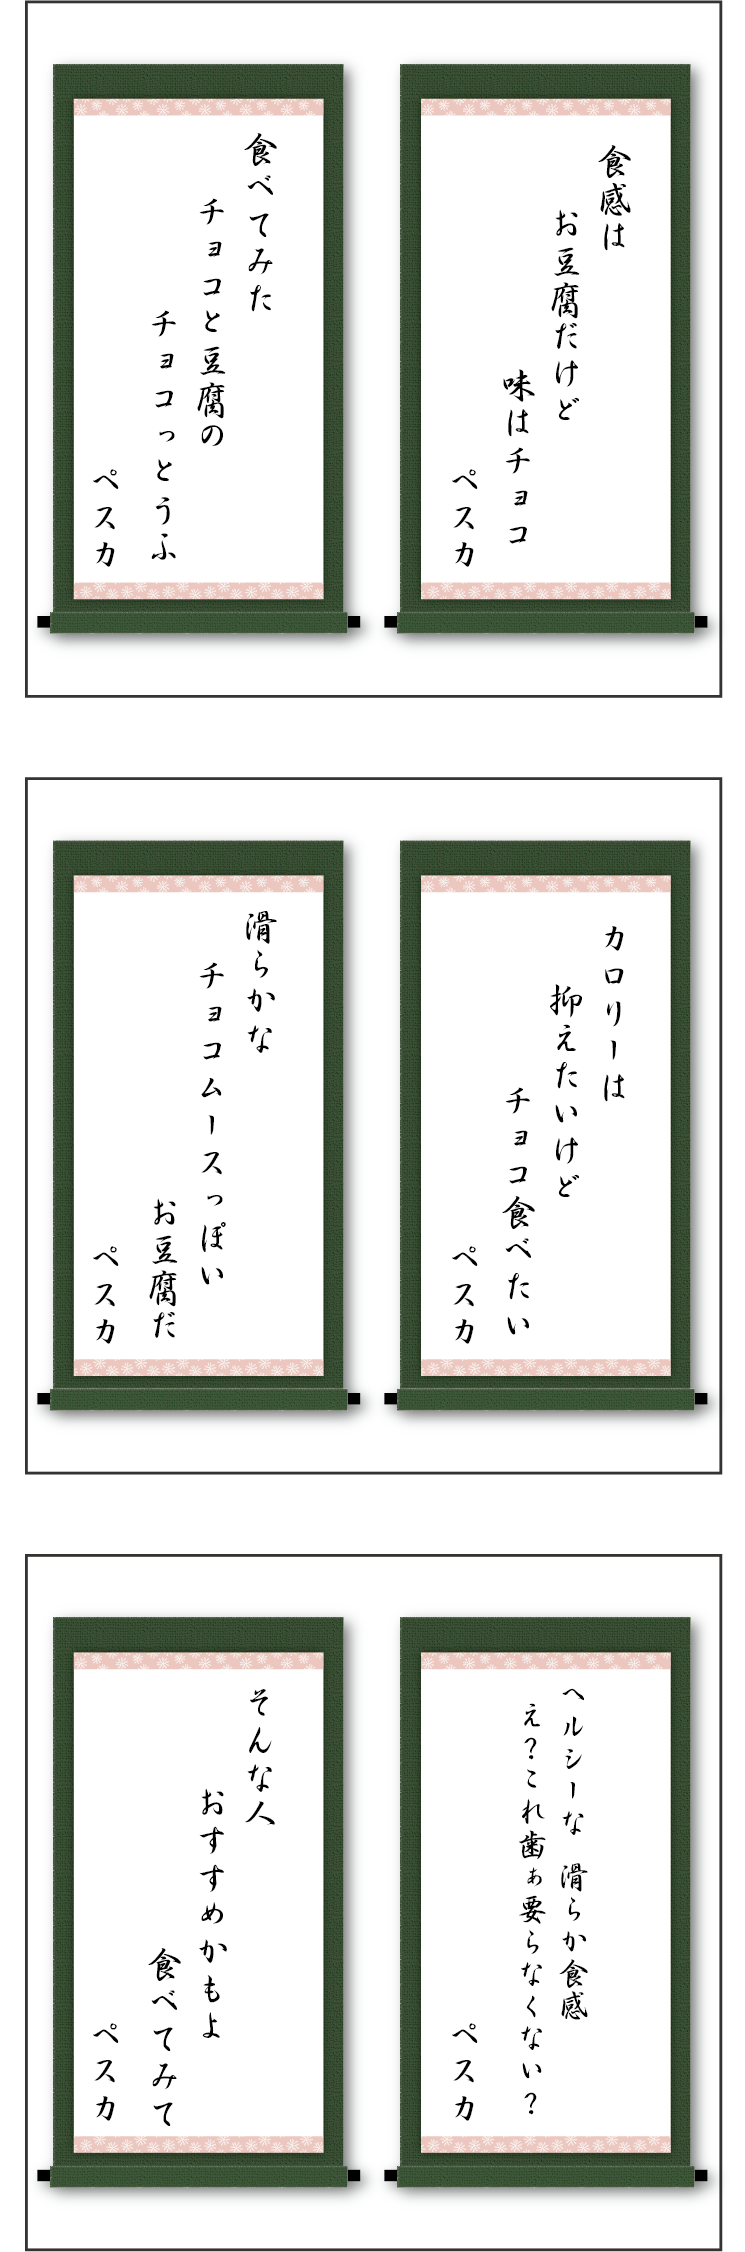 食感は
お豆腐だけど
味はチョコ
ペスカ
食べてみた
チョコと豆腐の
チョコっとうふ
ペスカ
カロリーは
抑えたいけど
チョコ食べたい
ペスカ
滑らかな
チョコムースっぽい
お豆腐だ
ペスカ
ヘルシーな 滑らか食感
え？これ歯ぁ要らなくない？
ペスカ
そんな人
おすすめかもよ
食べてみて
ペスカ